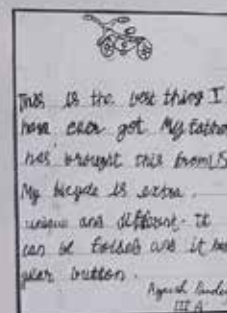 This is the best thing I
have ever got My father
has brought this from
My bicycle is extra.
unique and different. It
can be folded and it has
gear button.
III A